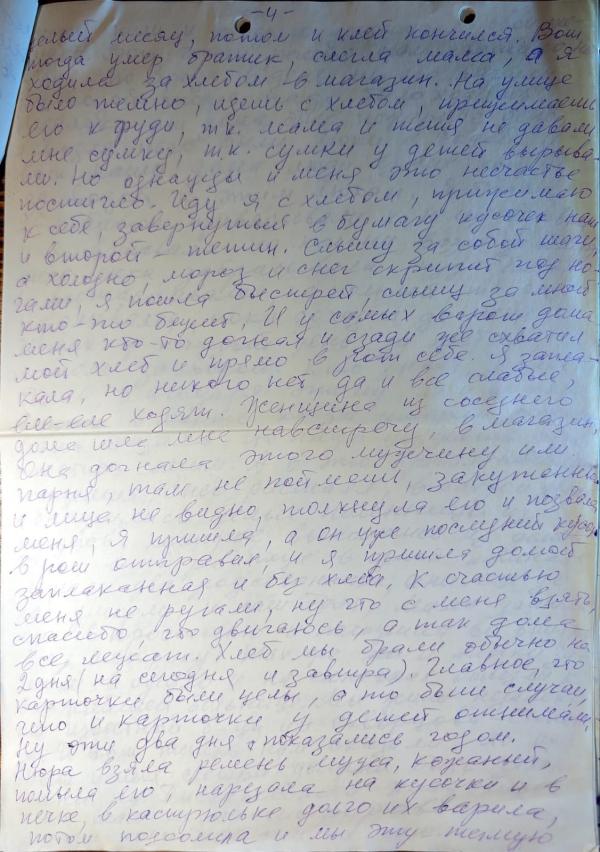 -4-
целый месяц, потом и клей кончился. Вот
тогда умер братик, слегла мама, а я
ходила за хлебом в магазин. На улице
было темно, идёшь с хлебом, прижимаешь
его к груди, т.к. мама и тётя не давали
мне сумку, т.к. сумки у детей вырыва-
ли. Но однажды и меня это несчастье
постигло. Иду я с хлебом, прижимаю
к себе завернутый в бумагу кусочек наш
и второй - тётин. Слышу за собой шаги,
а холодно, мороз и снег скрипит под но-
гами, я пошла быстрей, слышу за мной
кто-то бежит, И у самых ворот дома
меня кто-то догнал и сзади же схватил
мой хлеб и прямо в рот себе. Я запла-
кала, но никого нет, да и все слабые,
еле-еле ходят. Женщина из соседнего
дома шла мне навстречу, в магазин,
она догнала этого мужчину или
парня, там не поймёшь, закутанный
и лица не видно, толкнула его и позвала
меня, я пришла, а он уже последний кусок
в рот отправил, и я пришла домой
заплаканная и без хлеба. К счастью
меня не ругали, ну что с меня взять,
спасибо, что двигаюсь, а так дома
все лежат. Хлеб мы брали обычно на
2 дня (на сегодня и завтра). Главное, что
карточки были целы, а то были случаи,
что и карточки у детей отнимали.
Ну эти два дня показались годом.
Нюра взяла ремень мужа, кожаный,
помыла его, нарезала на кусочки и в
печке, в кастрюльке долго их варила,
потом посолила и мы эту тёмную